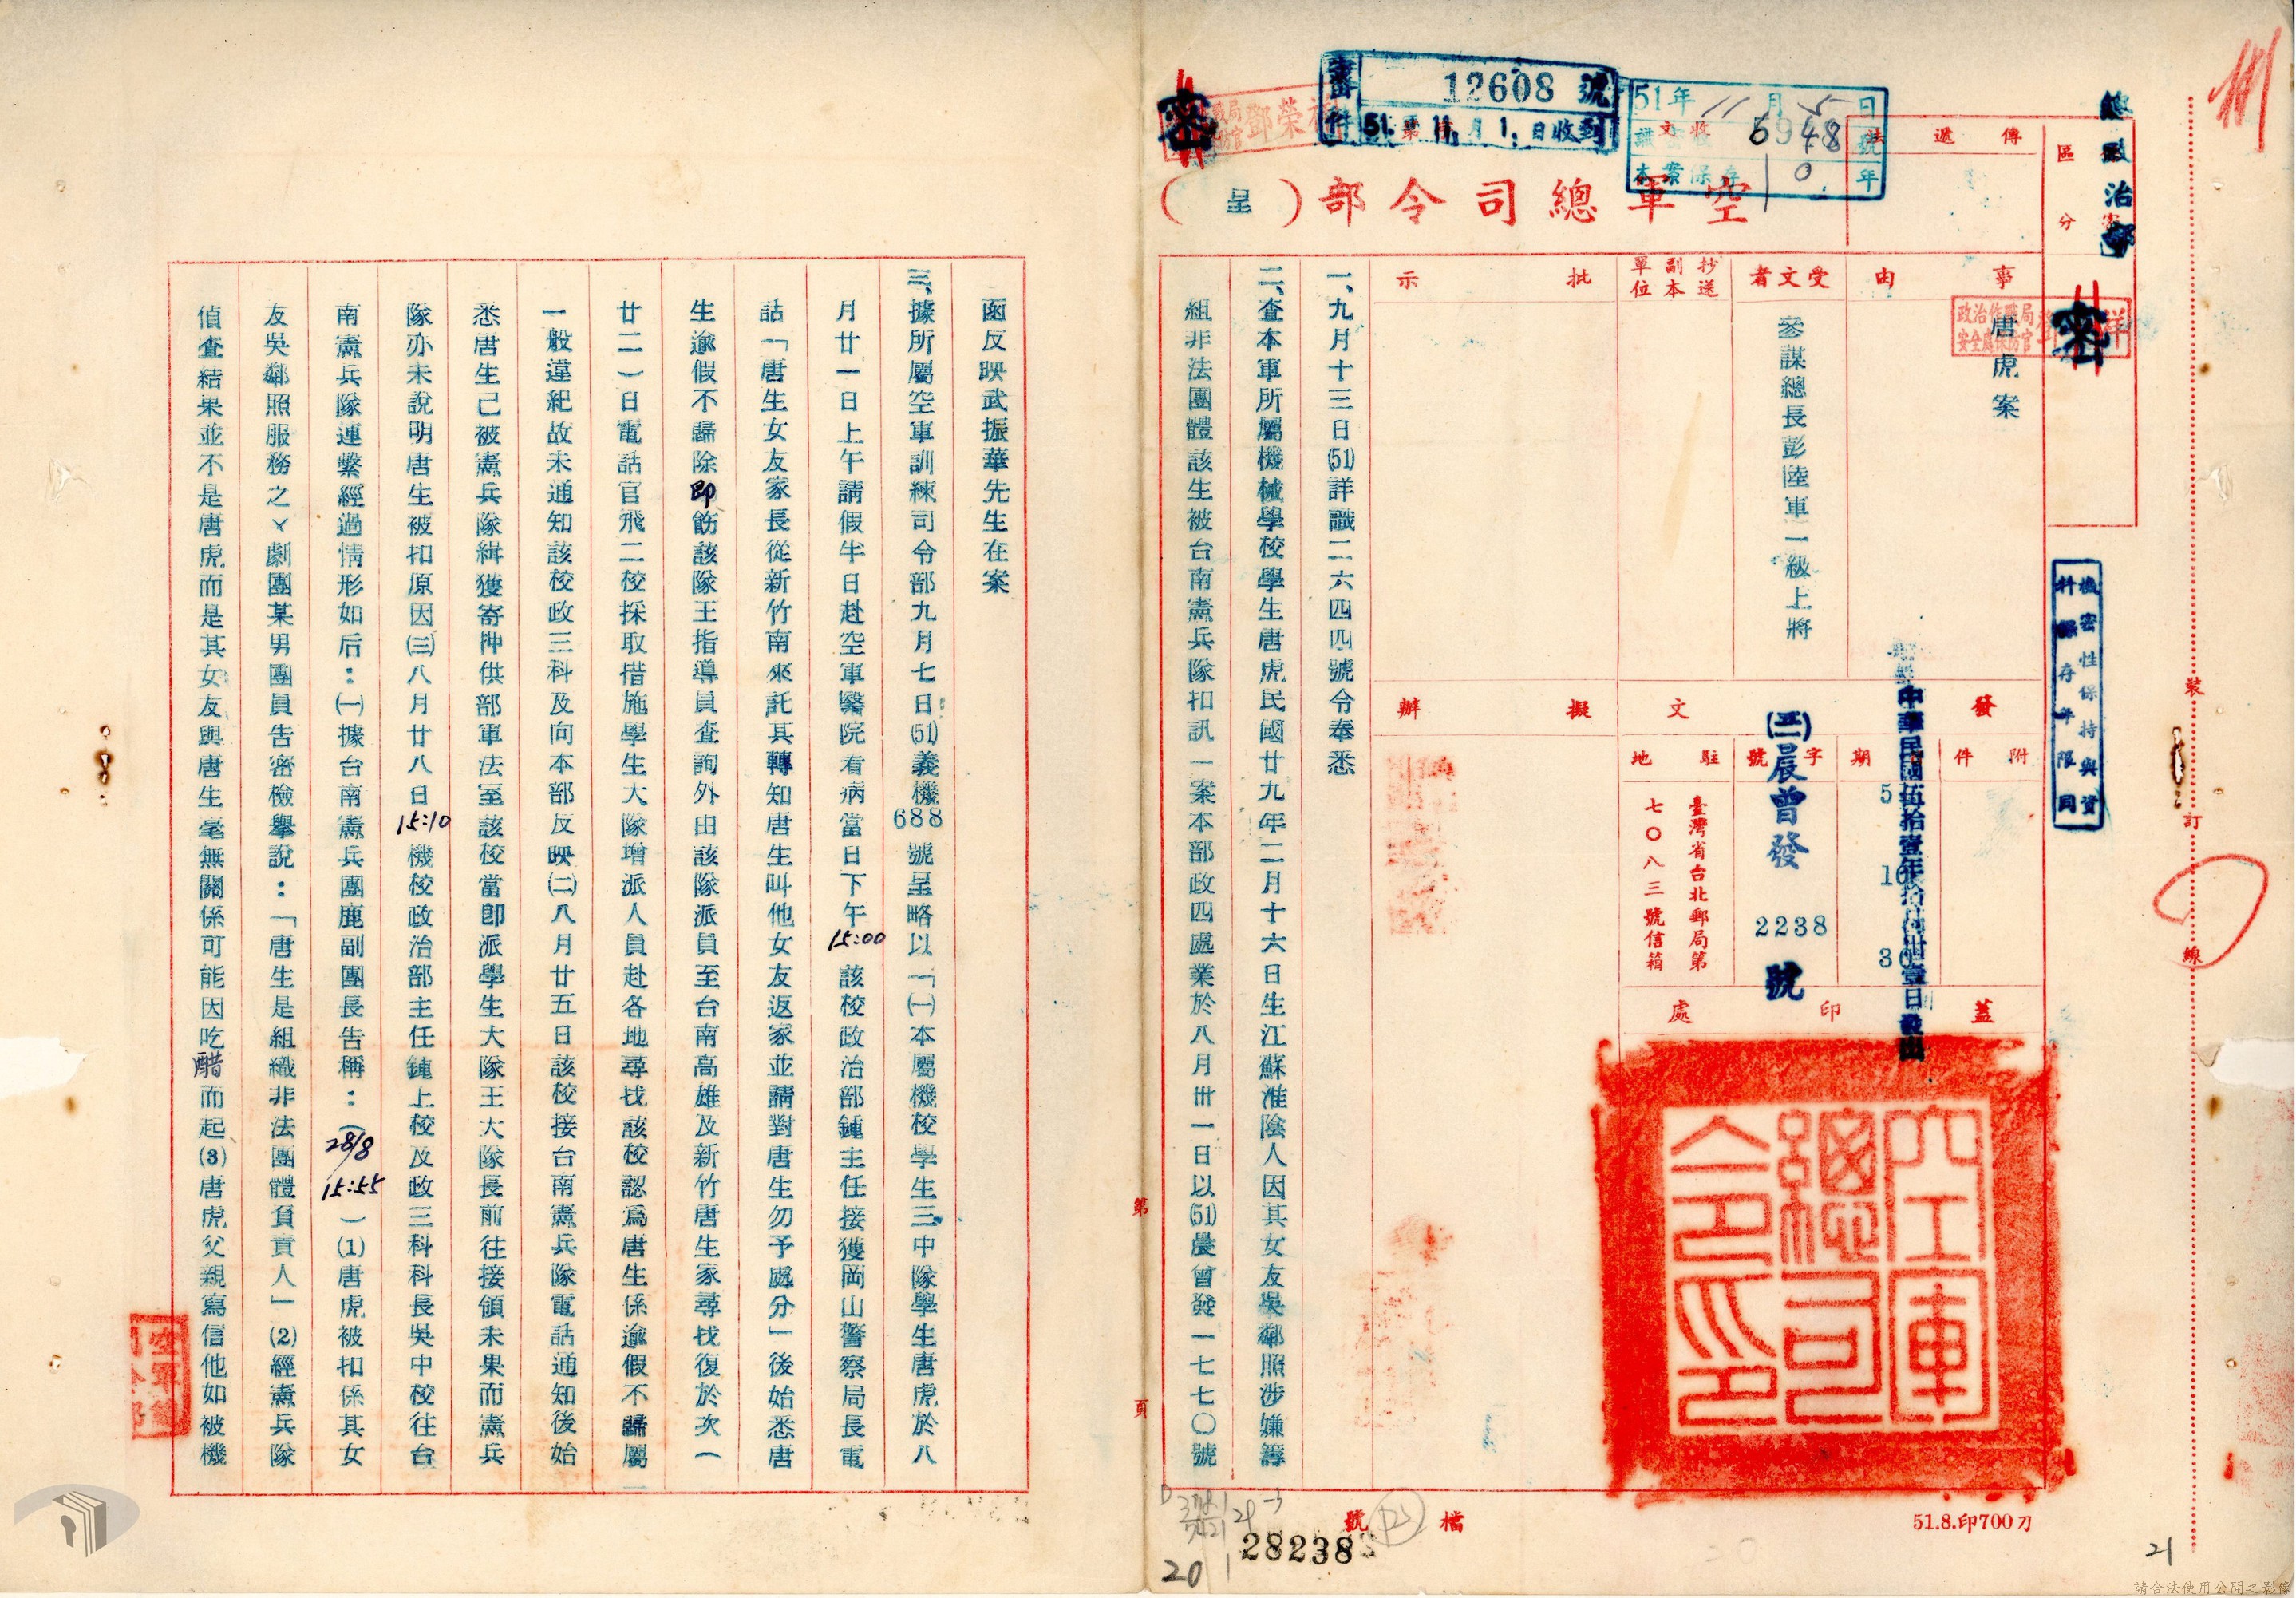 總政治部
密
區分
傳遞法
密件
12608號
51.11月1.日收到
51年11月5日
收文
6948號
本案保存10年
密
空軍總司令部(呈)
事由
唐虎案
受文者
參謀總長彭陸軍一級上將
抄送副本單位
批示
擬辦
發文
附件
日期
中華民國伍拾壹年拾月卅壹日發出
51
10
30
字號
(五一)晨曾發2238號
駐地
臺灣省台北郵局第七〇八三號信箱
蓋印處
空軍總司令印
機密性保持與資料保存年限同
政治作戰局
裝訂線
一、九月十三日(51)詳識二六四四號令奉悉
二、查本軍所屬機械學校學生唐虎民國廿九年二月十六日生江蘇淮陰人因其女友吳鄰照涉嫌籌
組非法團體該生被台南憲兵隊扣訊一案本部政四處業於八月卅一日以(51)晨曾發一七七〇號
檔號
28238
20
51.8.印700刀
21
第頁
函反映武振華先生在案
三、據所屬空軍訓練司令部九月七日(51)義機688號呈略以「(一)本屬機校學生三中隊學生唐虎於八
月廿一日上午請假半日赴空軍醫院看病當日下午15:00該校政治部鍾主任接獲岡山警察局長電
話「唐生女友家長從新竹南來託其轉知唐生叫他女友返家並請對唐生勿予處分」後始悉唐
生逾假不歸除即飭該隊王指導員查詢外由該隊派員至台南高雄及新竹唐生家尋找復於次(
廿二)日電話官飛二校採取措施學生大隊增派人員赴各地尋找該校認爲唐生係逾假不歸屬
一般違紀故未通知該校政三科及向本部反映(二)八月廿五日該校接台南憲兵隊電話通知後始
悉唐生已被憲兵隊緝獲寄押供部軍法室該校當卽派學生大隊王大隊長前往接領未果而憲兵
隊亦未說明唐生被扣原因(三)八月廿八日15:10機校政治部主任鍾上校及政三科科長吳中校往台
南憲兵隊連繫經過情形如后：(一)據台南憲兵團鹿副團長告稱：(28/8 15:55)(1)唐虎被扣係其女
友吳鄰照服務之ㄨ劇團某男團員告密檢擧說：「唐生是組織非法團體負責人」(2)經憲兵隊
偵查結果並不是唐虎而是其女友與唐生毫無關係可能因吃醋而起(3)唐虎父親寫信他如被機
請合法使用公開之影像